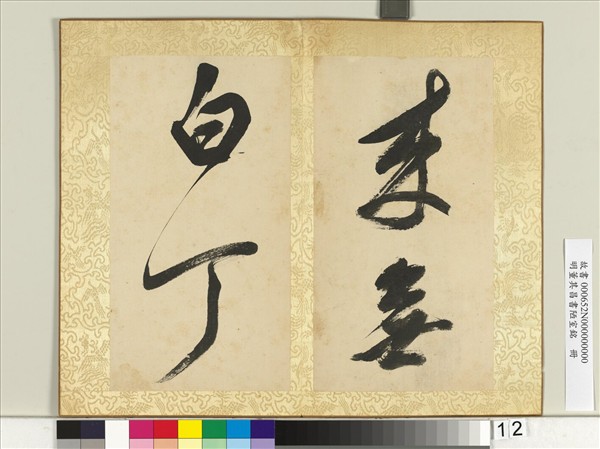 来無
白丁
故書 000652N000000000
明董其昌書陋室銘 冊
12